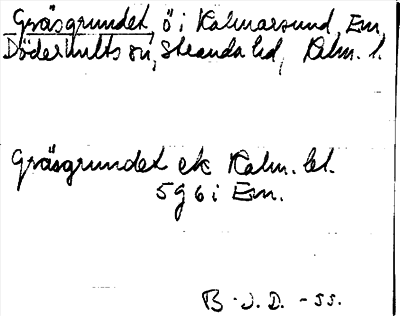 Gräsgrundet, ö i Kalmarsund, Em,
Döderhults sn, Stranda hd, Kalm. l.
Gräsgrundet ek Kalm. bl.
5 g 6 i Em.
B.J.D. - 55.